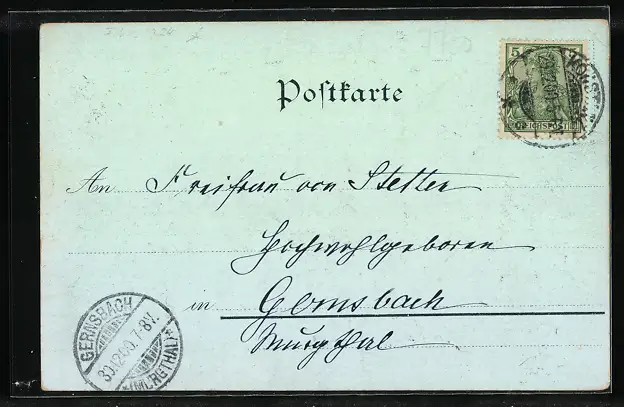 5
REICHSPOST
Postkarte
An Freifrau von Stetten
Hochwohlgeboren
in Gernsbach
Murgthal
GERNSBACH
30.12.00.7-8V.
*(MURGTHAL)*